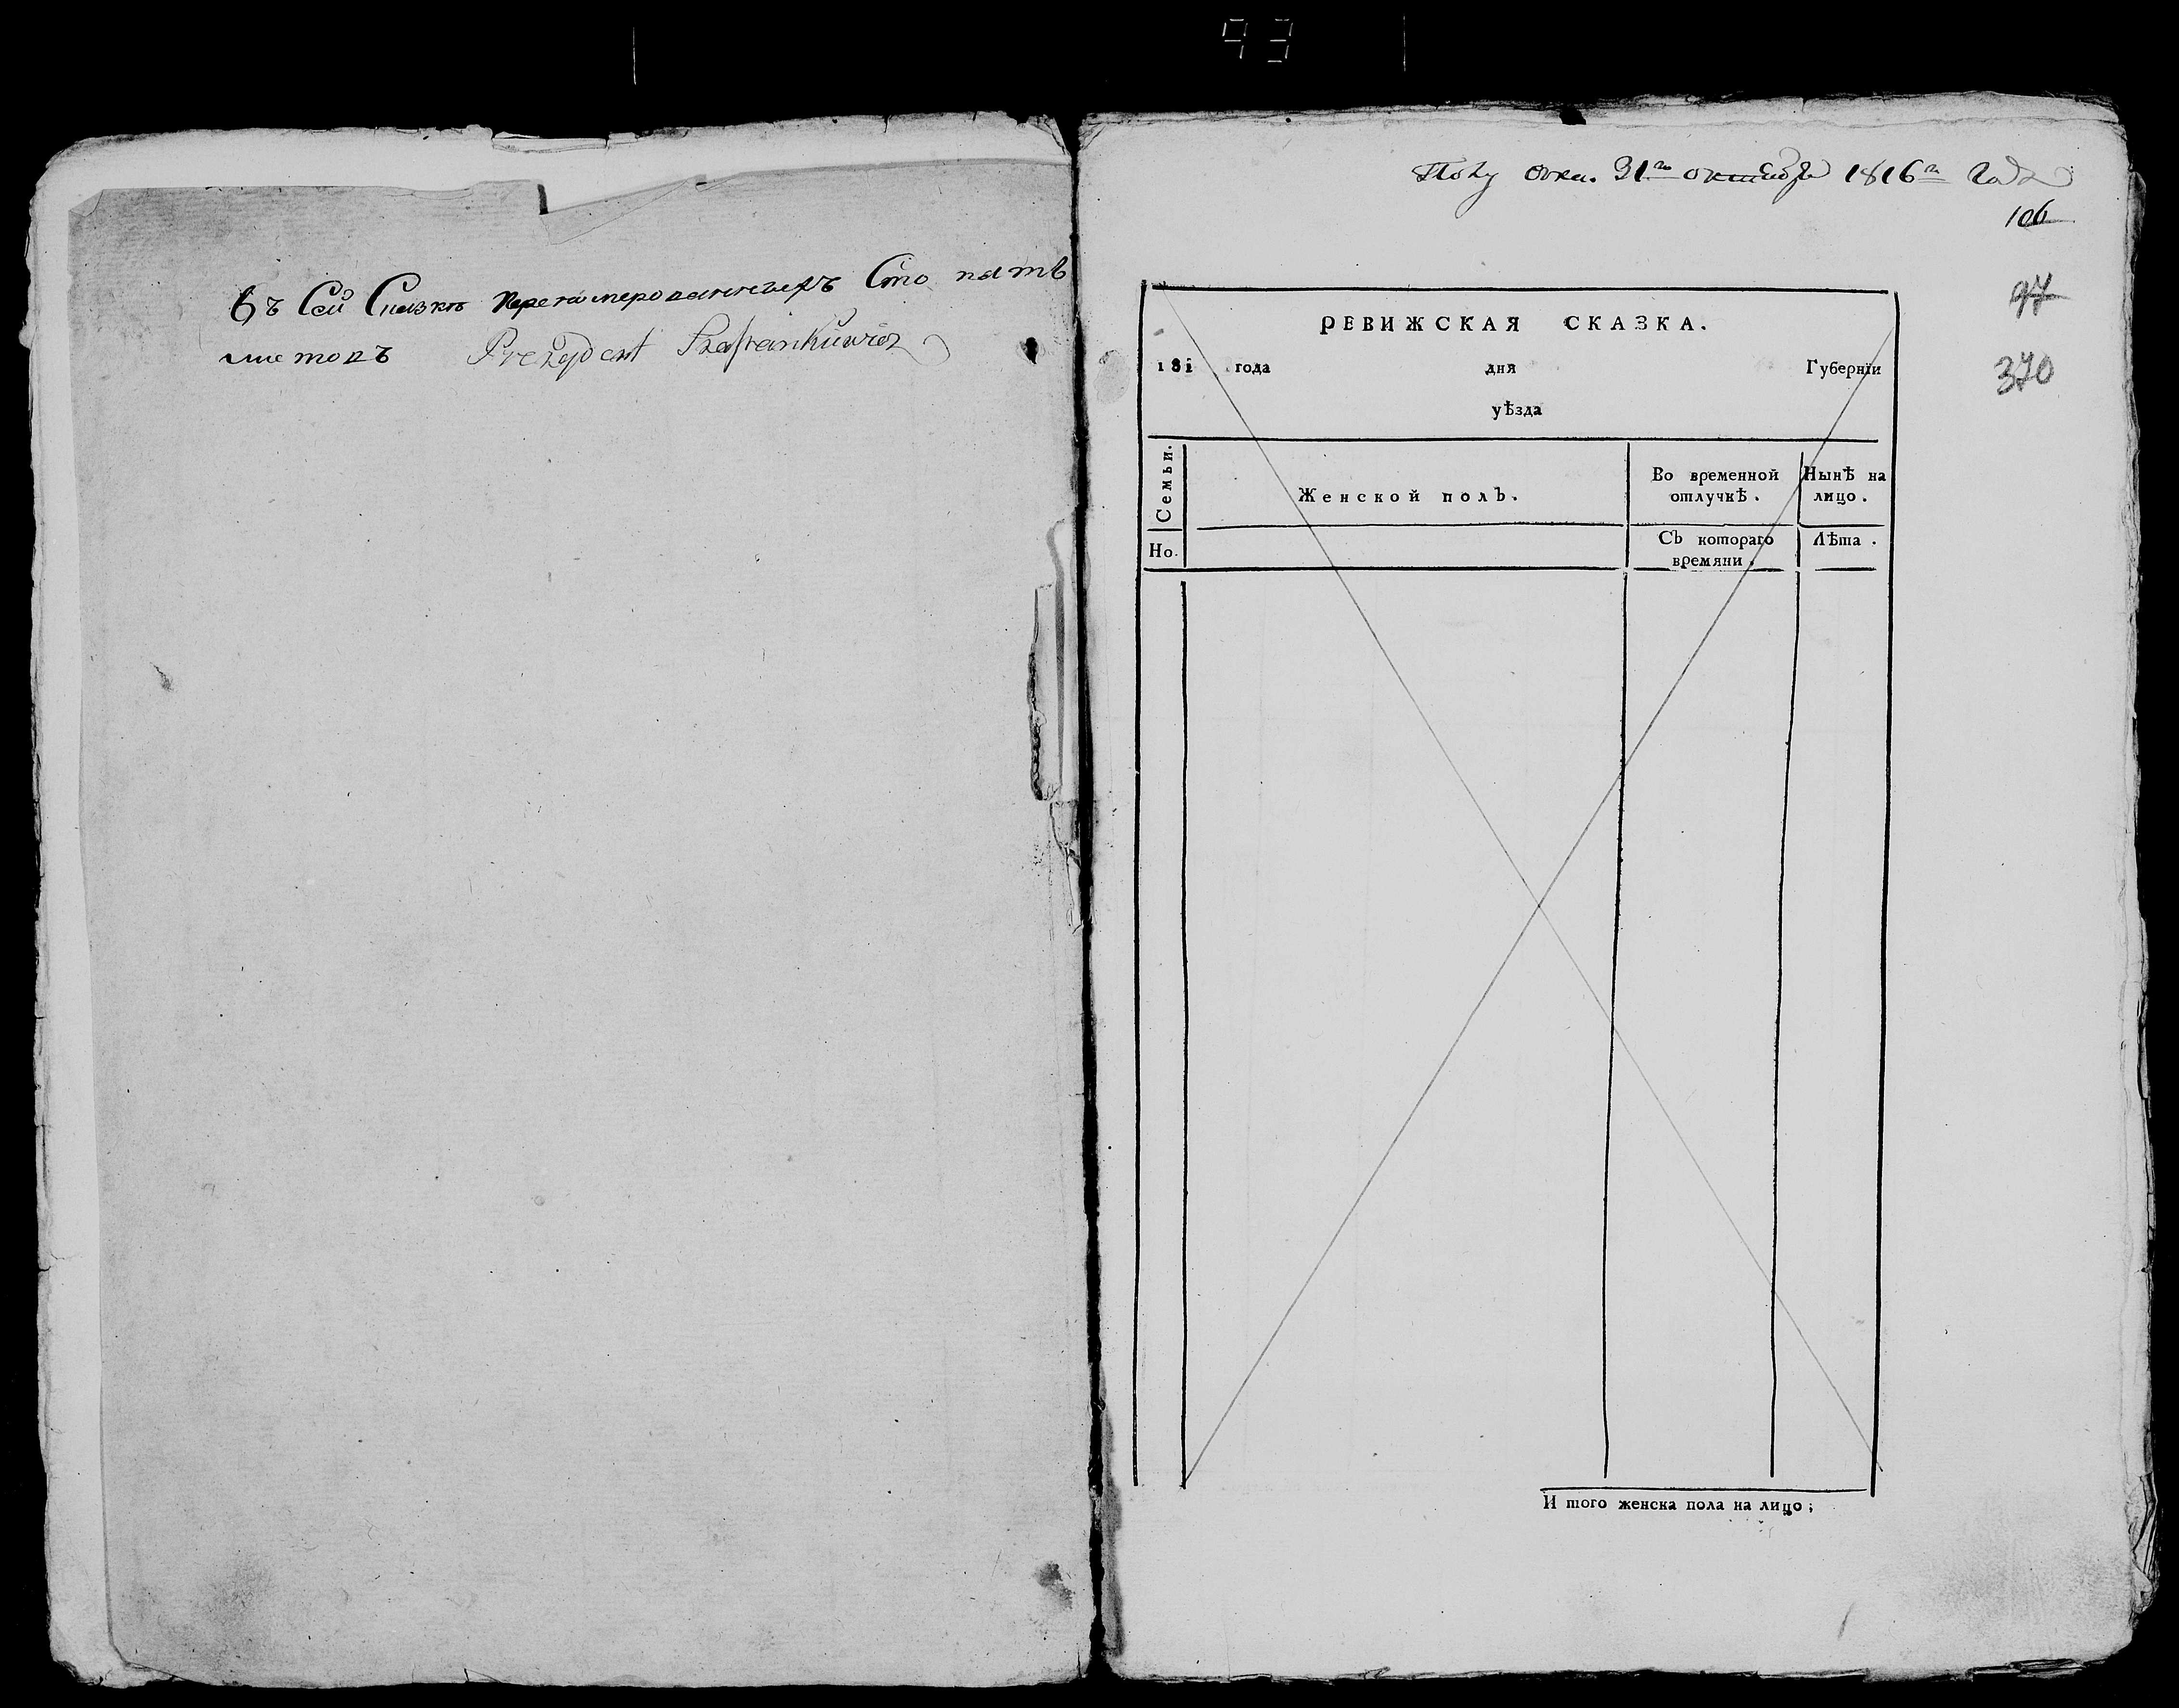 93
Въ Сей Сказкѣ перенумерованныхъ Сто пять
листовъ Prezydent
31го октября 1816го года
106
97
370
РЕВИЖСКАЯ СКАЗКА.
181 года дня Губернїи
уѣзда
Семьи.
Женской полъ.
Во временной отлучкѣ.
Нынѣ на лицо.
Но.
Съ котораго времяни.
Лѣта.
И того женска пола на лицо;